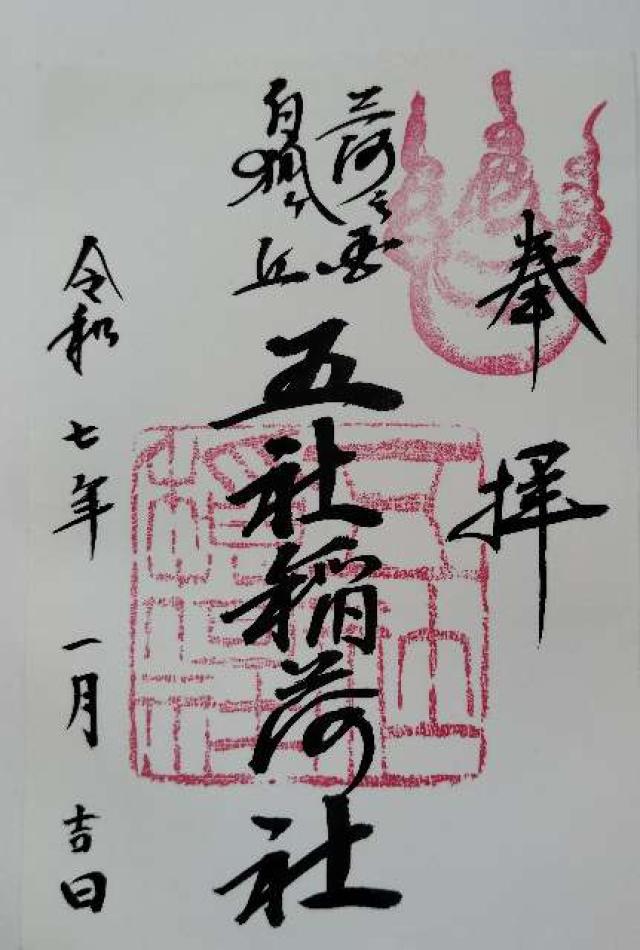 奉拝
三河之国
白狐ヶ丘
五社稲荷社
令和七年 一月 吉日